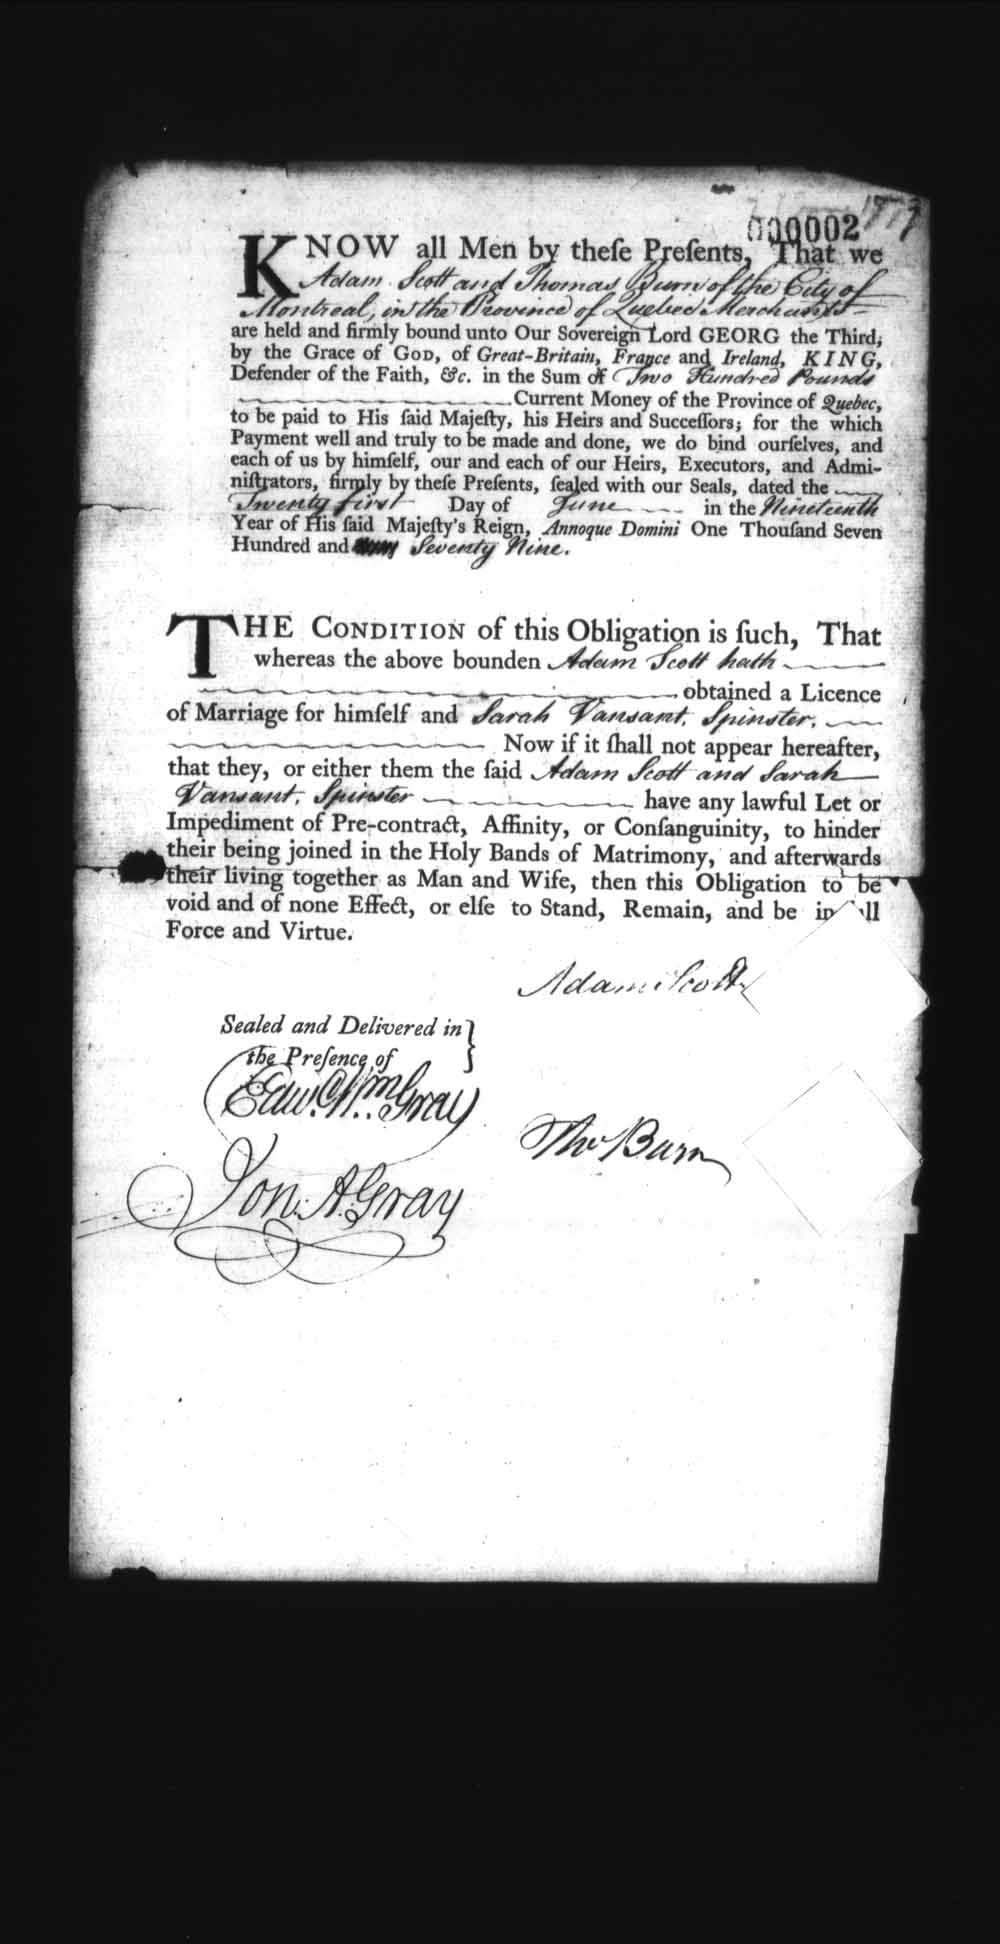 1779
000002
KNOW all Men by theſe Preſents, That we
Adam Scott and Thomas Burn of the City of
Montreal, in the Province of Quebec Merchants
are held and firmly bound unto Our Sovereign Lord GEORG the Third,
by the Grace of GOD, of Great-Britain, France and Ireland, KING,
Defender of the Faith, &c. in the Sum of Two Hundred Pounds
Current Money of the Province of Quebec,
to be paid to His ſaid Majeſty, his Heirs and Succeſſors; for the which
Payment well and truly to be made and done, we do bind ourſelves, and
each of us by himſelf, our and each of our Heirs, Executors, and Admi-
niſtrators, firmly by theſe Preſents, ſealed with our Seals, dated the
Twenty first Day of June in the Nineteenth
Year of His ſaid Majeſty's Reign, Annoque Domini One Thouſand Seven
Hundred and Seventy Nine.
THE CONDITION of this Obligation is ſuch, That
whereas the above bounden Adam Scott hath
obtained a Licence
of Marriage for himſelf and Sarah Vansant, Spinster,
Now if it ſhall not appear hereafter,
that they, or either them the ſaid Adam Scott and Sarah
Vansant, Spinster have any lawful Let or
Impediment of Pre-contract, Affinity, or Conſanguinity, to hinder
their being joined in the Holy Bands of Matrimony, and afterwards
their living together as Man and Wife, then this Obligation to be
void and of none Effect, or elſe to Stand, Remain, and be in all
Force and Virtue.
Adam Scott
Sealed and Delivered in }
the Preſence of
Edwd. Wm. Gray
Thos Burn
Jon. A. Gray